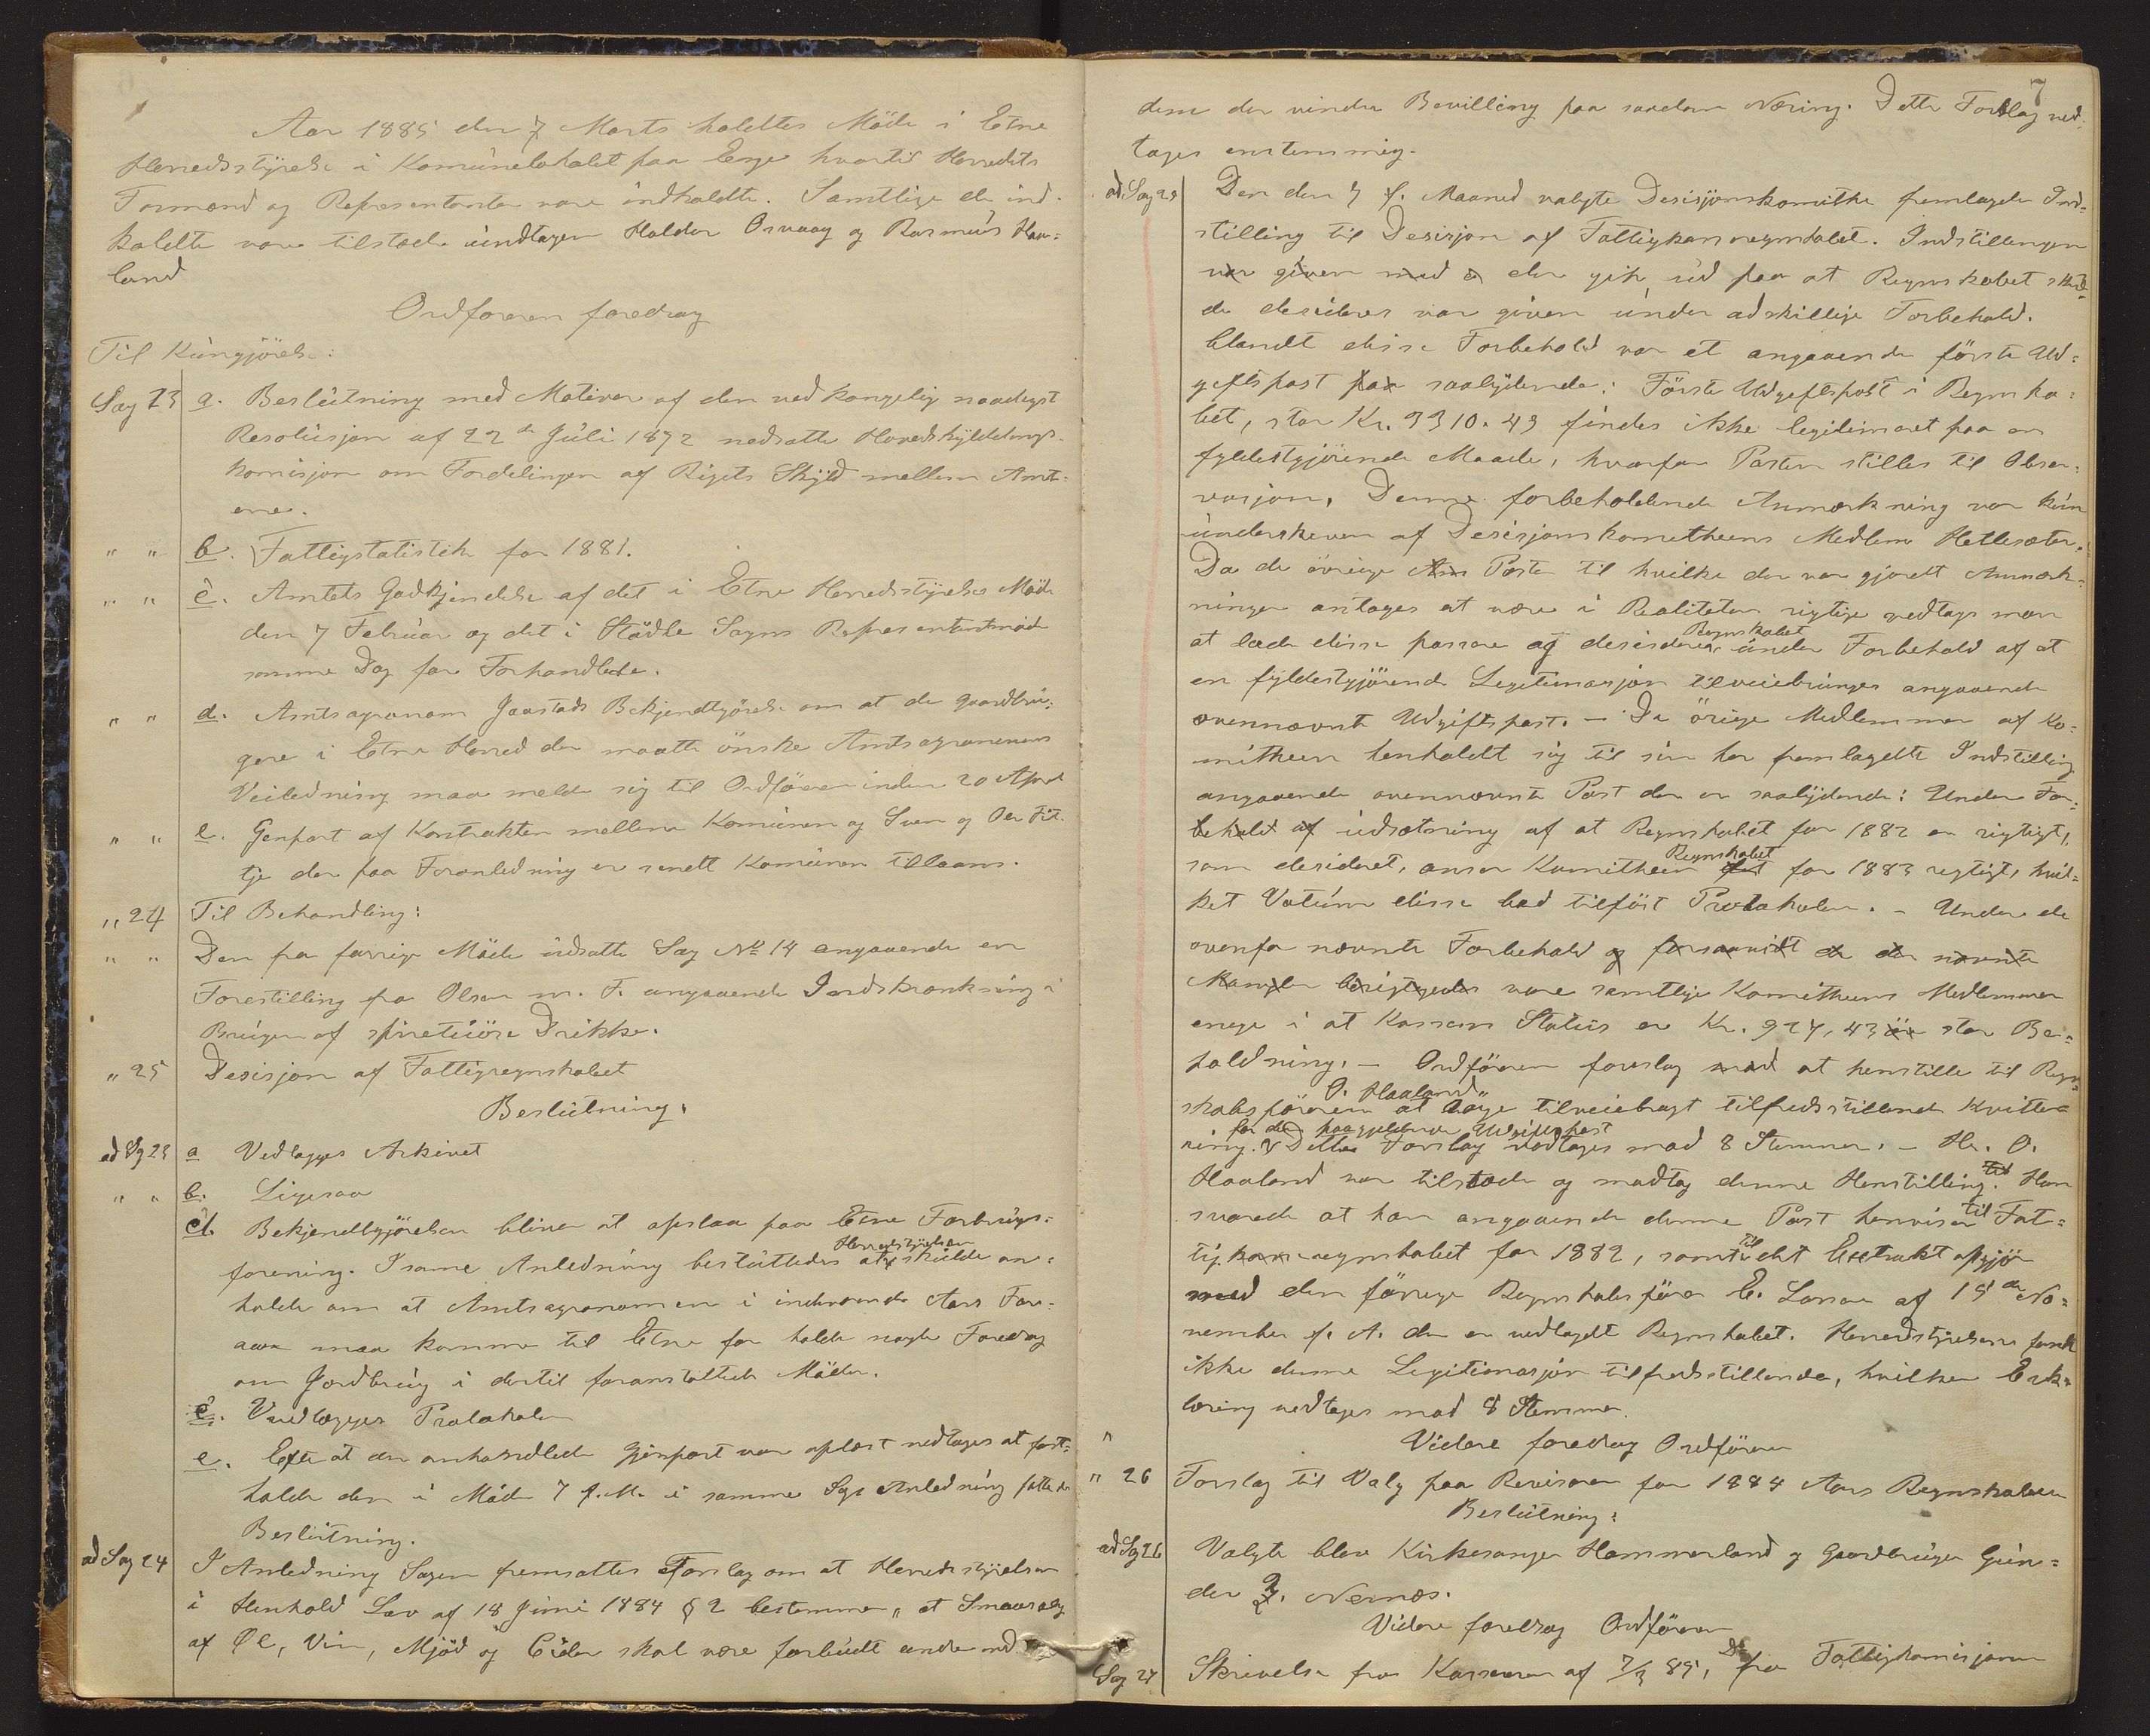 Aar 1885 den 7 Marts holdtes Möde i Etne
Herredsstyrelse i Komunelokalet paa Enge hvortil Herredets
Formænd og Representanter vare indkaldte. Samtlige de ind-
kaldte vare tilstede undtagen Haldor Osvaag og Rasmus Haa-
land
Ordföreren foredrog
Til Kungjörelse:
Sag 23 a. Beslutning med Motiver af den ved kongelig naadigst
Resolusjon af 22de Juli 1872 nedsatte Hovedskylddelings-
komisjon om Fordelingen af Rigets Skyld mellem Amt-
erne.
" " b. Fattigstatistik for 1881.
" " c. Amtets Godkjendelse af det i Etne Herredsstyrelses Möde
den 7 Februar og det i Stödle Sogns Representantmöde
samme Dag for Forhandlede.
" " d. Amtsagronom Jaastads Bekjendtgjörelse om at de gaardbru-
gere i Etne Herred der maatte önske Amtsagronomens
Veiledning maa melde sig til Ordföreren inden 20 April
" " e. Genpart af Kontrakten mellem Komunen og Sven og Ole Fit-
tje der paa Foranledning er sendt Komunen tillaans.
" 24 Til Behandling:
" " Den fra forrige Möde udsatte Sag No 14 angaaende en
Forestilling fra Olsen m. F. angaaende Indskrænkning i
Brugen af spirituöse Drikke.
" 25 Desisjon af Fattigregnskabet
Beslutning.
ad Sg 23 a Vedlægges Arkivet
" " b. Ligesaa
d. Bekjendtgjörelsen bliver at opslaa paa Etne Forbrugs-
forening. I same Anledning besluttedes at Herredsstyrelsen skulde an-
holde om at Amtsagronomen i indeværende Aars For-
aar maa komme til Etne for holde nogle Foredrag
om Jordbrug i dertil foranstaltede Möder.
c. Vedlægges Protokolen
e. Efter at den omhandlede Gjenpart var oplæst vedtoges at fast-
holde den i Möde 7 f. M. i samme Sags Anledning fattede
Beslutning.
ad Sag 24 I Anledning Sagen fremsattes Forslag om at Herredsstyrelsen
i Henhold Lov af 18 Juni 1884 § 2 bestemmer "at Smaasalg
af Øl, Vin, Mjöd og Cider skal være forbudt andre end
7
dem der vinder Bevilling paa saadan Næring. Dette Forslag ved-
toges enstemmig.
ad Sag 25 Den den 7 f. Maaned valgte Desisjonskomithe fremlagde Ind-
stilling til Desisjon af Fattigkasseregnskabet. Indstillingen
var given med der gik ud paa at Regnskabet skul-
de desideres var given under adskillige Forbehold.
blandt disse Forbehold var et angaaende förste Ud-
giftspost saalydende: Förste Udgiftspost i Regnska-
bet, stor Kr. 3310.43 findes ikke legitimeret paa en
fyldestgjörende Maade, hvorfor Posten stilles til Obser-
vasjon, Denne forbeholdende Anmærkning var kun
underskreven af Desisjonskomitheens Medlem Hettesæter.
Da de övrige Poster til hvilke der var gjordt Anmærk-
ninger antages at være i Realiteten rigtige vedtages man
at lade disse passere og desidere Regnskabet under Forbehold af at
en fyldestgjörende Legitimasjon tilveiebringes angaaende
ovennævnte Udgiftspost. — De övrige Medlemmer af Ko-
mitheen henholdt sig til sin her fremlagdte Indstilling
angaaende ovennævnte Post der er saalydende: Under For-
behold af udsætning af at Regnskabet for 1882 er rigtigt,
som desideret, anser Komitheen Regnskabet for 1883 rigtigt, hvil-
ket Votum disse bad tilföit Protokolen. — Under de
ovenfor nævnte Forbehold og forsaavidt de der nævnte
Mangler berigtigedes vare samtlige Komitheens Medlemmer
enige i at Kassens Status er Kr. 927,43 stor Be-
holdning. — Ordföreren foreslog med at henstille til Regn-
skabsföreren O. Haaland at söge tilveiebragt tilfredsstillende Kvitte-
ring for den paagjeldende Udgiftspost. Dette Forslag vedtoges med 8 Stemmer. — Hr. O.
Haaland var tilstede og modtog denne Henstilling. Han
svarede at han angaaende denne Post henviser til Fat-
tigkasseregnskabet for 1882, samt til det Extrakt opgjör
med den förrige Regnskabsförer E. Larsen af 15de No-
vember f. A. der er vedlagdt Regnskabet. Herredsstyrelsen fandt
ikke denne Legitimasjon tilfredsstillende, hvilken Erk-
læring vedtoges med 8 Stemmer.
" Videre foredrog Ordföreren
" 26 Forslag til Valg paa Revisorer for 1884 Aars Regnskaber
Beslutning:
ad Sg 26 Valgte blev Kirkesanger Hammerland og Gaardbruger Gun-
der J. Nernæs.
Videre foredrog Ordföreren
Sag 27 Skrivelse fra Kasseren af 7/3 85, Do fra Fattigkomisjonen